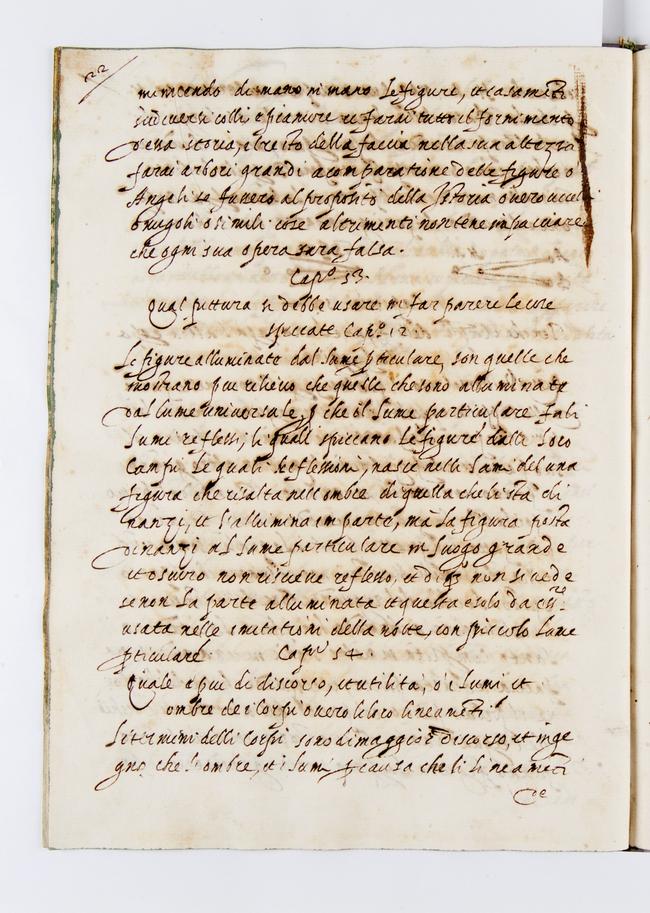 22
minuendo di mano in mano le figure, et casamēti
sù diversi colli e pianure et farai tutto il fornimento
d'essa storia, e'l resto della faccia nella sua altezza
farai arbori grandi a comparatione delle figure o
Angeli se fussero al proposito della Istoria overo uccelli
o nugoli o simili cose altrimenti non tene impacciare
che ogni sua opera sara falsa.
Capº 53.
Qual pittura si debbe usare in far parere le cose
spiccate Capº. 12
Le figure alluminate dal lume pticulare, son quelle che
mostrano piu rilievo che quelle che sono alluminate
dal lume universale, p che il lume particulare fa li
lumi reflessi, li quali spiccano le figure dalli loro
Campi le quali reflessioni, nasce nelli lumi del una
figura che risalta nell'ombre di quella che li sta di
nanzi, et l'allumina in parte, ma la figura posta
dinanzi al lume particulare in luogo grande
et oscuro non riceve reflesso, et di qsta non si vede
se non la parte alluminata et questa e solo da essere
usata nelle imitationi della notte, con piccolo lume
pticulare. Capº 54.
Quale e piu di discorso, et utilità, o i lumi et
ombre de i Corpi overo li loro lineamēti.
Li termini delli Corpi sono di maggior discorso, et inge
gno che l'ombre, et i lumi p causa che li lineamēti
de